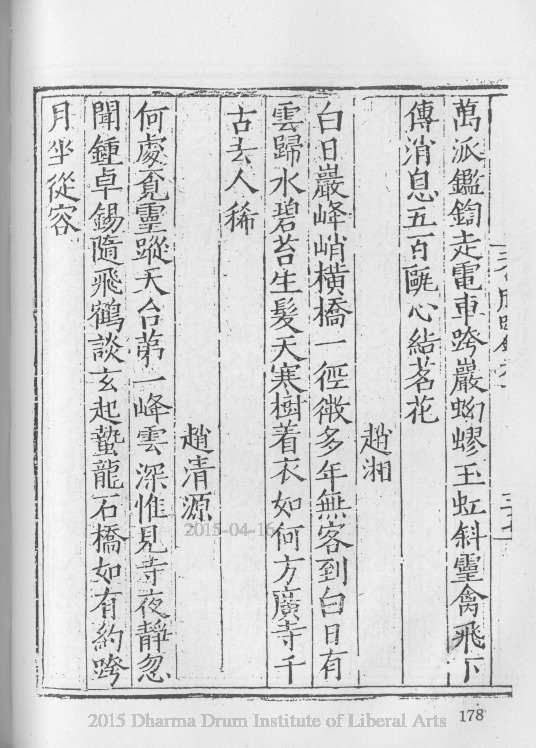 萬派鑑鍧走電車跨巖蚴蟉玉虹斜靈禽飛下
傳消息五百甌心結茗花
趙湘
白日巖峰峭橫橋一徑微多年無客到白日有
雲歸水碧苔生髮天寒樹着衣如何方廣寺千
古去人稀
趙清源
何處覓靈蹤天台第一峰雲深惟見寺夜靜忽
聞鍾卓錫隨飛鶴談玄起蟄龍石橋如有約跨
月坐從容
2015-04-16
2015 Dharma Drum Institute of Liberal Arts
178